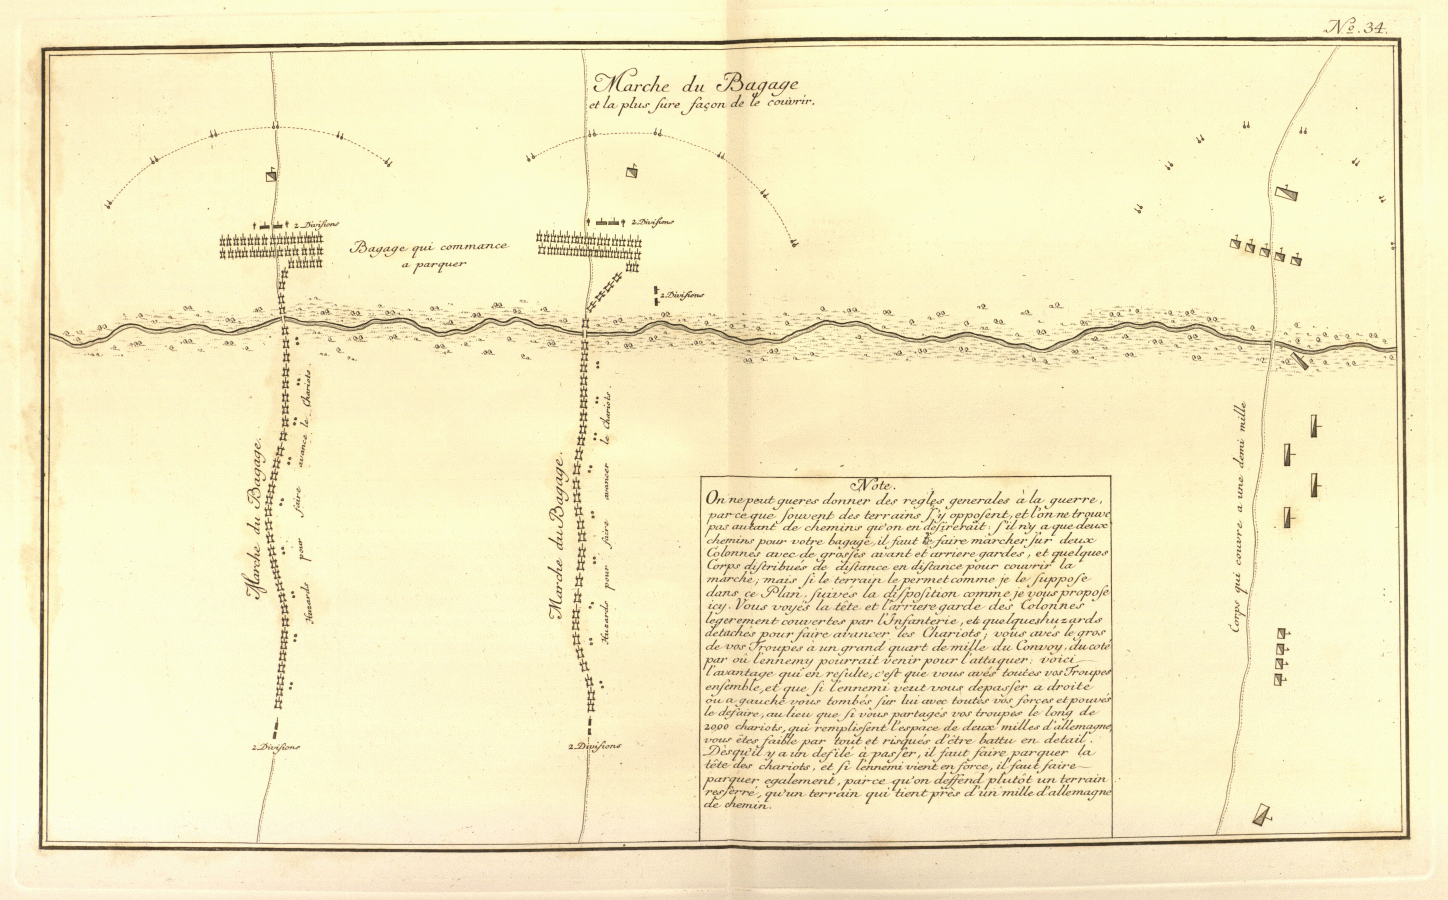 No. 34.
Marche du Bagage
et la plus sure façon de le couvrir.
2 Divisions
2 Divisions
Bagage qui commance
a parquer
2 Divisions
Marche du Bagage.
Huzards pour faire avance le Chariots.
Marche du Bagage.
Huzards pour faire avancer le Chariots.
Corps qui couvre a une demi mille
2 Divisions
2 Divisions
Note.
On ne peut gueres donner des regles generales à la guerre,
parce que souvent des terrains s'y opposent, et l'on ne trouve
pas autant de chemins qu'on en désirerait: s'il n'y a que deux
chemins pour votre bagage, il faut le faire marcher sur deux
Colonnes avec de grosses avant et arriere gardes, et quelques
Corps distribués de distance en distance pour couvrir la
marche; mais si le terrain le permet comme je le suppose
dans ce Plan, suivés la disposition comme je vous propose
icy. Vous voyés la tête et l'arriere garde des Colonnes
legerement couvertes par l'Infanterie, et quelques huzards
détachés pour faire avancer les Chariots; vous avés le gros
de vos Troupes à un grand quart de mille du Convoy, du coté
par où l'ennemy pourrait venir pour l'attaquer: voici
l'avantage qui en resulte, c'est que vous avés toutes vos Troupes
ensemble, et que si l'ennemi veut vous depasser a droite
ou a gauche vous tombés sur lui avec toutes vos forces et pouvés
le defaire, au lieu que si vous partagés vos troupes le long de
2000 chariots, qui remplissent l'espace de deux milles d'allemagne,
vous êtes faible par tout et risqués d'être battu en detail.
Dèsqu'il y a un defilé à passer, il faut faire parquer la
tête des chariots, et si l'ennemi vient en force, il faut faire
parquer egalement, parce qu'on deffend plutôt un terrain
resserré, qu'un terrain qui tient près d'un mille d'allemagne
de chemin.